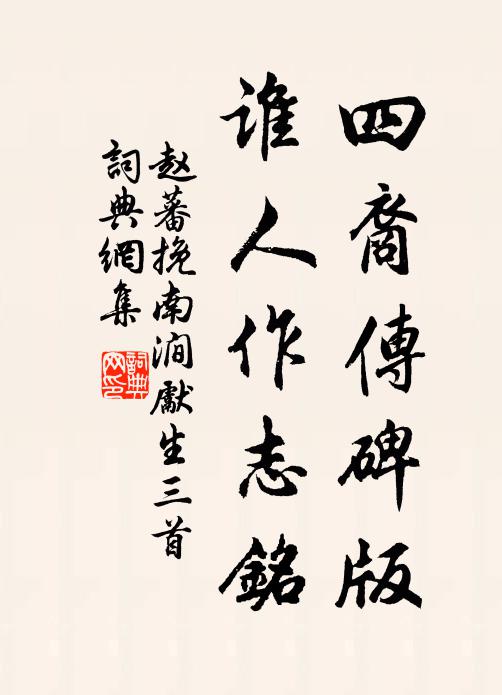 四裔傳碑版
誰人作志銘
赵蕃挽南澗獻生三首
詞典網集
詞典網印